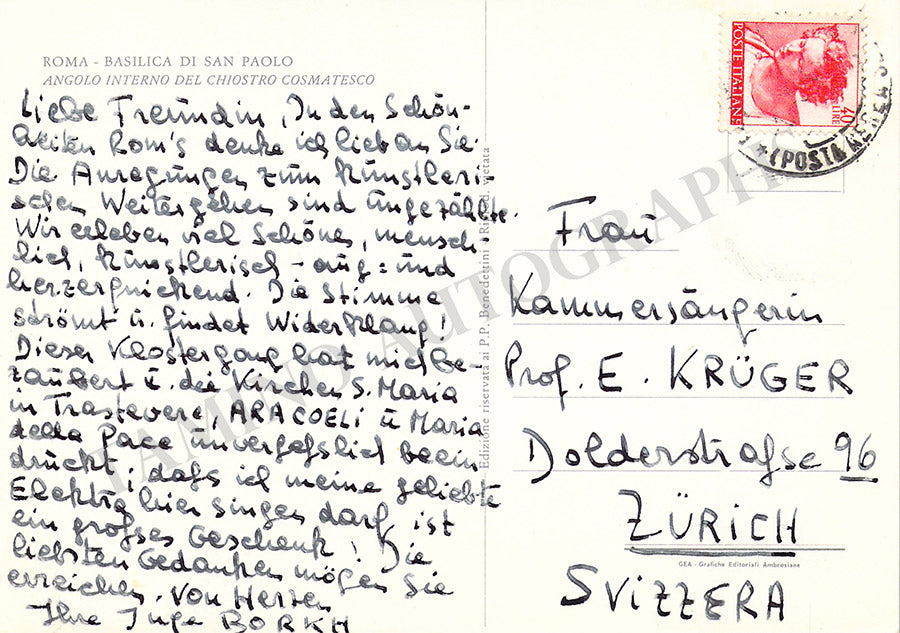 ROMA - BASILICA DI SAN PAOLO
ANGOLO INTERNO DEL CHIOSTRO COSMATESCO
Liebe Freundin, In den Schön-
heiten Rom's denke ich lieb an Sie.
Die Anregungen zum künstleri-
schen Weitergehen sind ungezählte.
Wir erleben viel Schönes, mensch-
lich, künstlerisch - aug= und
herzerquickend. Die Stimme
strömt u. findet Widerklang!
Dieser Klostergang hat mich be-
zaubert u. die Kirchen S. Maria
in Trastevere, ARACOELI u Maria
della Pace unvergesslich beein-
druckt; dass ich meine geliebte
Elektra hier singen darf ist
ein grosses Geschenk! Die
liebsten Gedanken mögen Sie
erreichen. von Herzen
Ihre Inge BORKH
Edizione riservata ai P.P. Benedettini - Riprod. vietata
POSTE ITALIANE
40 LIRE
(POSTA AEREA
Frau
Kammersängerin
Prof. E. KRÜGER
Dolderstrasse 96
ZÜRICH
GEA - Grafiche Editoriali Ambrosiane
SVIZZERA
TAMINO AUTOGRAPHS